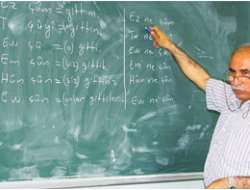 Ez çûm = gittim
Tu çûyî = gittin
Ew çû = (o) gitti
Em çûn = (biz) gittik
Hûn çûn = (siz) gittiniz
Ew çûn = (onlar) gittiler
Ez ne çûm
Tu ne
Ew ne
Em ne çûn
Hûn ne çûn
Ew ne çûn